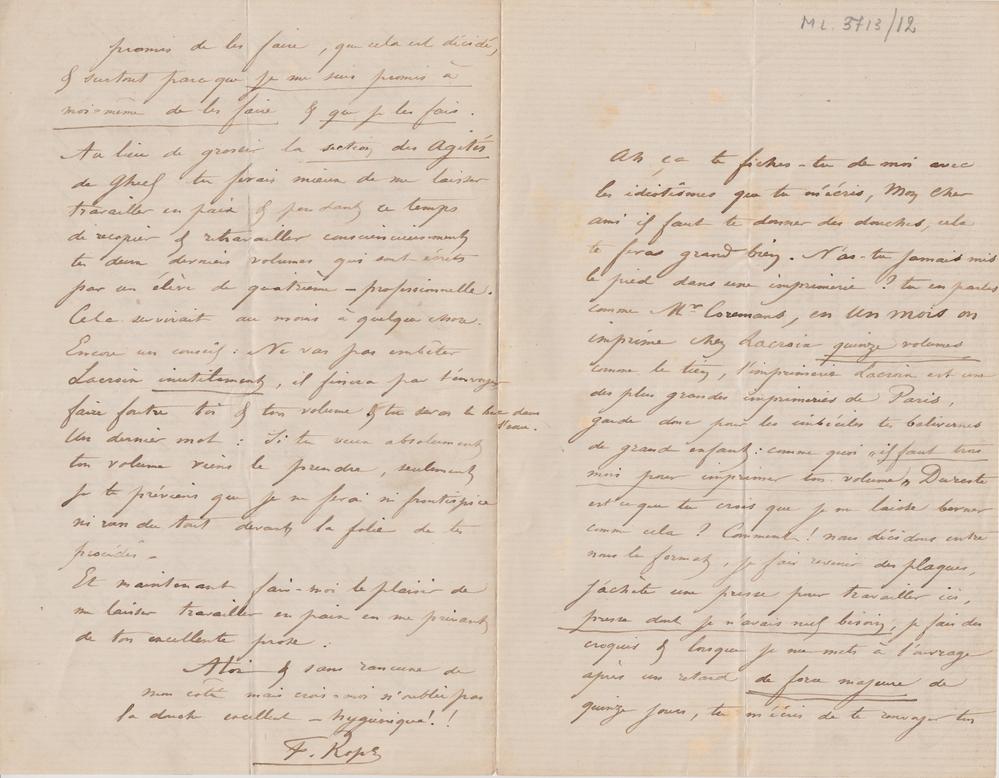 ML. 3713/12
Ah, ça te fiches-tu de moi avec
les idiotismes que tu m'écris, Mon Cher
ami il faut te donner des douches, cela
te feras grand bien. N'as-tu jamais mis
le pied dans une imprimerie ? tu en parles
comme Mr Coremans, en un mois on
imprime chez Lacroix quinze volumes
comme le tien, l'imprimerie Lacroix est une
des plus grandes imprimeries de Paris,
garde donc pour les imbéciles tes balivernes
de grand enfant : comme quoi « il faut trois
mois pour imprimer ton volume » Dureste
est ce que tu crois que je me laisse berner
comme cela ? Comment ! nous décidons entre
nous le format, je fais revenir des plaques,
j'achète une presse pour travailler ici,
presse dont je n'avais nul besoin, je fais des
croquis & lorsque je me mets à l'ouvrage
après un retard de force majeure de
quinze jours, tu m'écris de te renvoyer ton
promis de les faire, que cela est décidé,
& surtout parce que je me suis promis à
moi-même de les faire & que je les fais.
Au lieu de grossir la section des Agités
de Gheel tu ferais mieux de me laisser
travailler en paix & pendant ce temps
de recopier & retravailler consciencieusement
tes deux derniers volumes qui sont écrits
par un élève de quatrième – professionnelle.
Cela servirait au moins à quelque chose.
Encore un conseil : Ne vas pas embêter
Lacroix inutilement, il finira par t'envoyer
faire foutre toi & ton volume & tu seras le bec dans
l'eau.
Un dernier mot : Si tu veux absolument
ton volume viens le prendre, seulement
je te préviens que je ne ferai ni frontispice
ni rien du tout devant la folie de tes
procédés –
Et maintenant fais-moi le plaisir de
me laisser travailler en paix en me privant
de ton excellente prose.
A toi & sans rancune de
mon côté mais crois-moi n'oublie pas
la douche excellent – hygiénique ! !
F. Rops